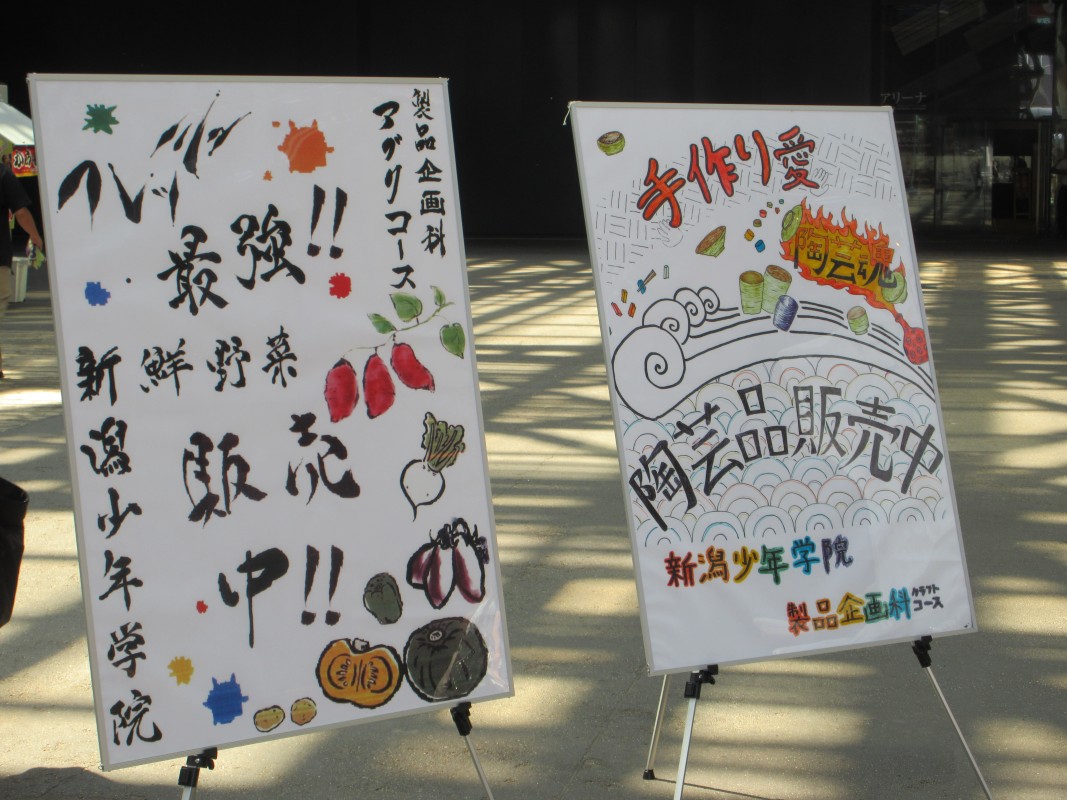 製品企画科
アグリコース
最強!!
新鮮野菜
販売
中!!
新潟少年学院
手作り愛
陶芸魂
陶芸品販売中
新潟少年学院
製品企画科
クラフト
コース
アリーナ